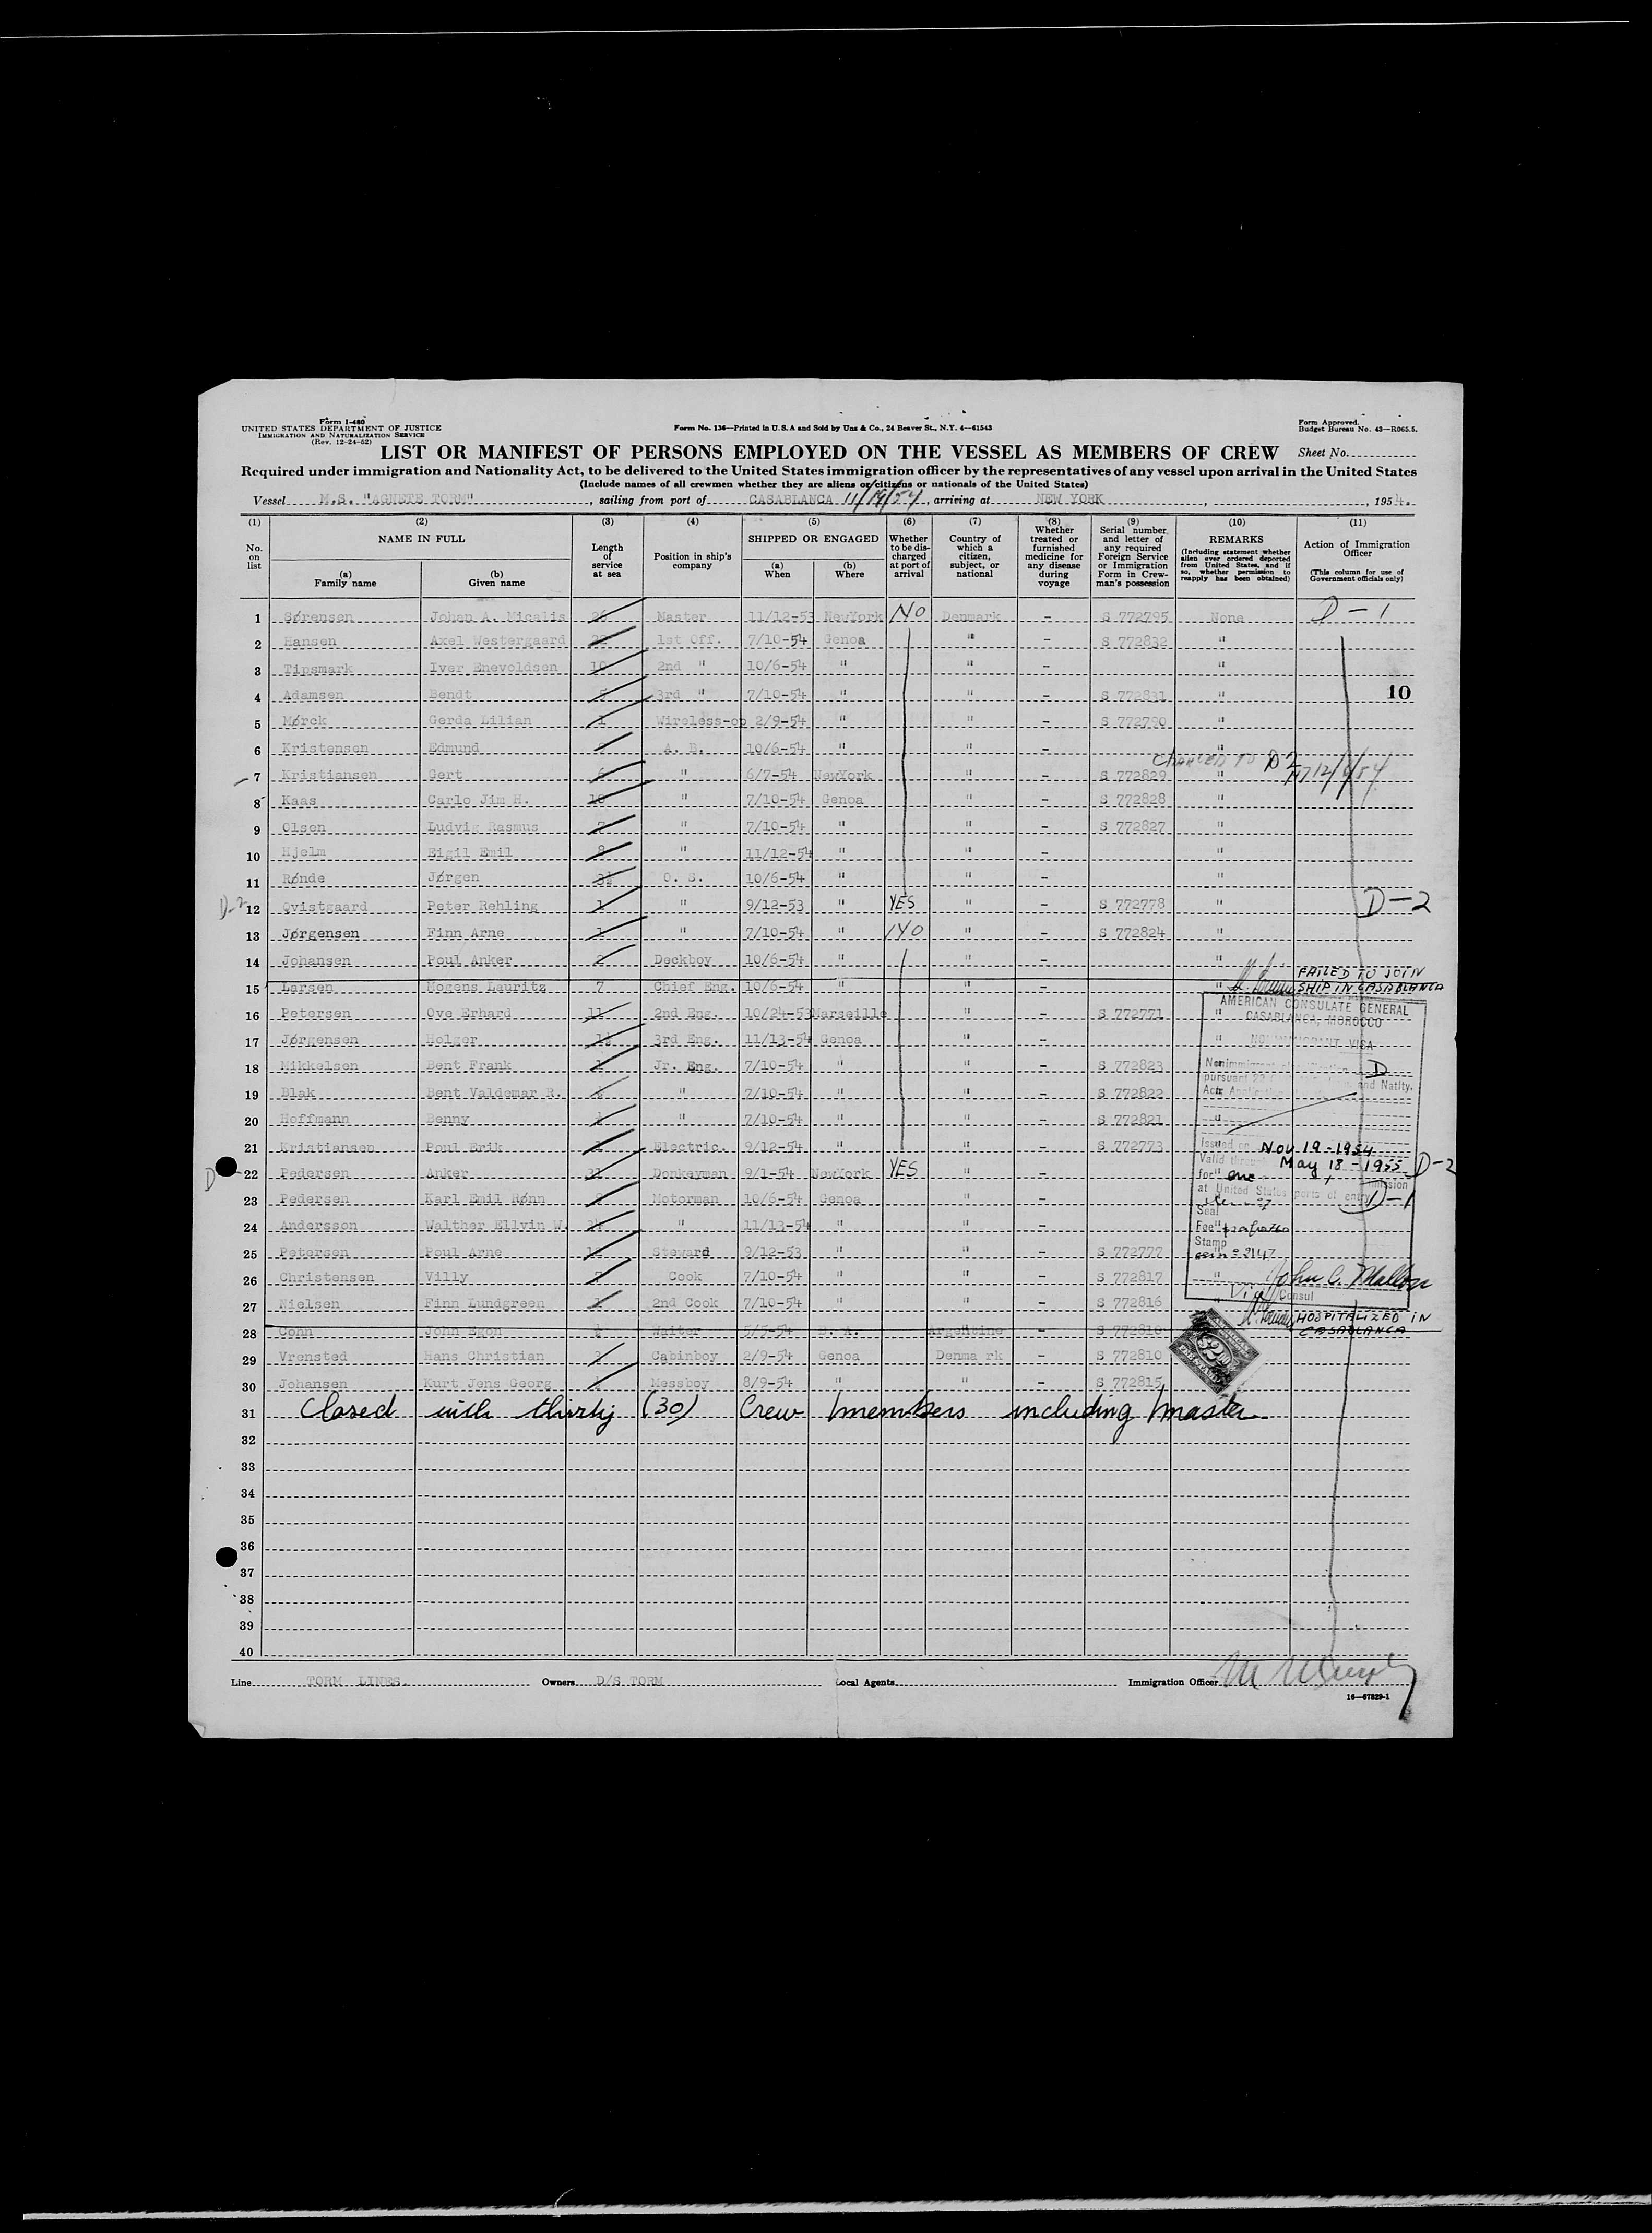 Form I-480
UNITED STATES DEPARTMENT OF JUSTICE
IMMIGRATION AND NATURALIZATION SERVICE
(Rev. 12-24-52)
Form No. 136—Printed in U.S.A and Sold by Unz & Co., 24 Beaver St., N.Y. 4—61543
Form Approved.
Budget Bureau No. 43—R065.5.
LIST OR MANIFEST OF PERSONS EMPLOYED ON THE VESSEL AS MEMBERS OF CREW Sheet No.
Required under immigration and Nationality Act, to be delivered to the United States immigration officer by the representatives of any vessel upon arrival in the United States
(Include names of all crewmen whether they are aliens or citizens or nationals of the United States)
Vessel M.S. "AGNETE TORM", sailing from port of CASABLANCA 11/19/54, arriving at NEW YORK, 1954.
(1) (2) (3) (4) (5) (6) (7) (8) (9) (10) (11)
No. on list
NAME IN FULL
(a) Family name
(b) Given name
Length of service at sea
Position in ship's company
SHIPPED OR ENGAGED
(a) When
(b) Where
Whether to be discharged at port of arrival
Country of which a citizen, subject, or national
Whether treated or furnished medicine for any disease during voyage
Serial number and letter of any required Foreign Service or Immigration Form in Crewman's possession
REMARKS
(Including statement whether alien ever ordered deported from United States, and if so, whether permission to reapply has been obtained)
Action of Immigration Officer
(This column for use of Government officials only)
1 Sørensen Johan A. Nicolis 26 Master 11/12-53 NewYork NO Denmark - S 772795 None D-1
2 Hansen Axel Westergaard 22 1st Off. 7/10-54 Genoa " - S 772832 "
3 Tipsmark Iver Enevoldsen 10 2nd " 10/6-54 " " - "
4 Adamsen Bendt 3rd " 7/10-54 " " - S 772831 " 10
5 Mørck Gerda Lilian 1 Wireless-op 2/9-54 " " - S 772790 "
6 Kristensen Edmund A. B. 10/6-54 " " - "
changed to D2 12/6/54
7 Kristiansen Gert 6 " 6/7-54 NewYork " - S 772829 "
8 Kaas Carlo Jim H. 10 " 7/10-54 Genoa " - S 772828 "
9 Olsen Ludvig Rasmus 7 " 7/10-54 " " - S 772827 "
10 Hjelm Eigil Emil 8 " 11/12-54 " " - "
11 Rønde Jørgen 3½ O. S. 10/6-54 " " - "
D-2 12 Qvistgaard Peter Rehling 1 " 9/12-53 " YES " - S 772778 " D-2
13 Jørgensen Finn Arne 1 " 7/10-54 " NO " - S 772824 "
14 Johansen Poul Anker 2 Deckboy 10/6-54 " " - "
15 Larsen Mogens Lauritz 7 Chief Eng. 10/6-54 " " - " FAILED TO JOIN SHIP IN CASABLANCA
16 Petersen Ove Erhard 11 2nd Eng. 10/24-53 Marseille " - S 772771 "
17 Jørgensen Holger 1½ 3rd Eng. 11/13-54 Genoa " - "
18 Mikkelsen Bent Frank 1 Jr. Eng. 7/10-54 " " - S 772823
19 Blak Bent Valdemar R. " 7/10-54 " " - S 772822
20 Hoffmann Benny " 7/10-54 " " - S 772821 "
21 Kristiansen Poul Erik Electric. 9/12-54 " " - S 772773
D 22 Pedersen Anker 31 Donkeyman 9/1-54 NewYork YES " - D-2
23 Pedersen Karl Emil Rønn Motorman 10/6-54 Genoa " - D-1
24 Andersson Walther Ellvin W. " 11/13-54 " " - "
25 Petersen Poul Arne Steward 9/12-53 " " - S 772777 "
26 Christensen Villy 7 Cook 7/10-54 " " - S 772817 "
27 Nielsen Finn Lundgreen 1 2nd Cook 7/10-54 " " - S 772816 "
28 Cohn John Egon Waiter 5/5-54 B. A. Argentine - S 772810 HOSPITALIZED IN CASABLANCA
29 Vrensted Hans Christian 3 Cabinboy 2/9-54 Genoa Denma rk - S 772810
30 Johansen Kurt Jens Georg Messboy 8/9-54 " " - S 772815
AMERICAN CONSULATE GENERAL
CASABLANCA, MOROCCO
NONIMMIGRANT VISA
D
and Natlty.
Issued on Nov 19-1954
Valid through May 18-1955
for one
at United States ports of entry
Seal
Fee
Stamp
John C. Mallon
Vice Consul
31 Closed with thirty (30) Crew members including master
32
33
34
35
36
37
38
39
40
Line TORM LINES. Owners D/S TORM Local Agents Immigration Officer
16—67829-1